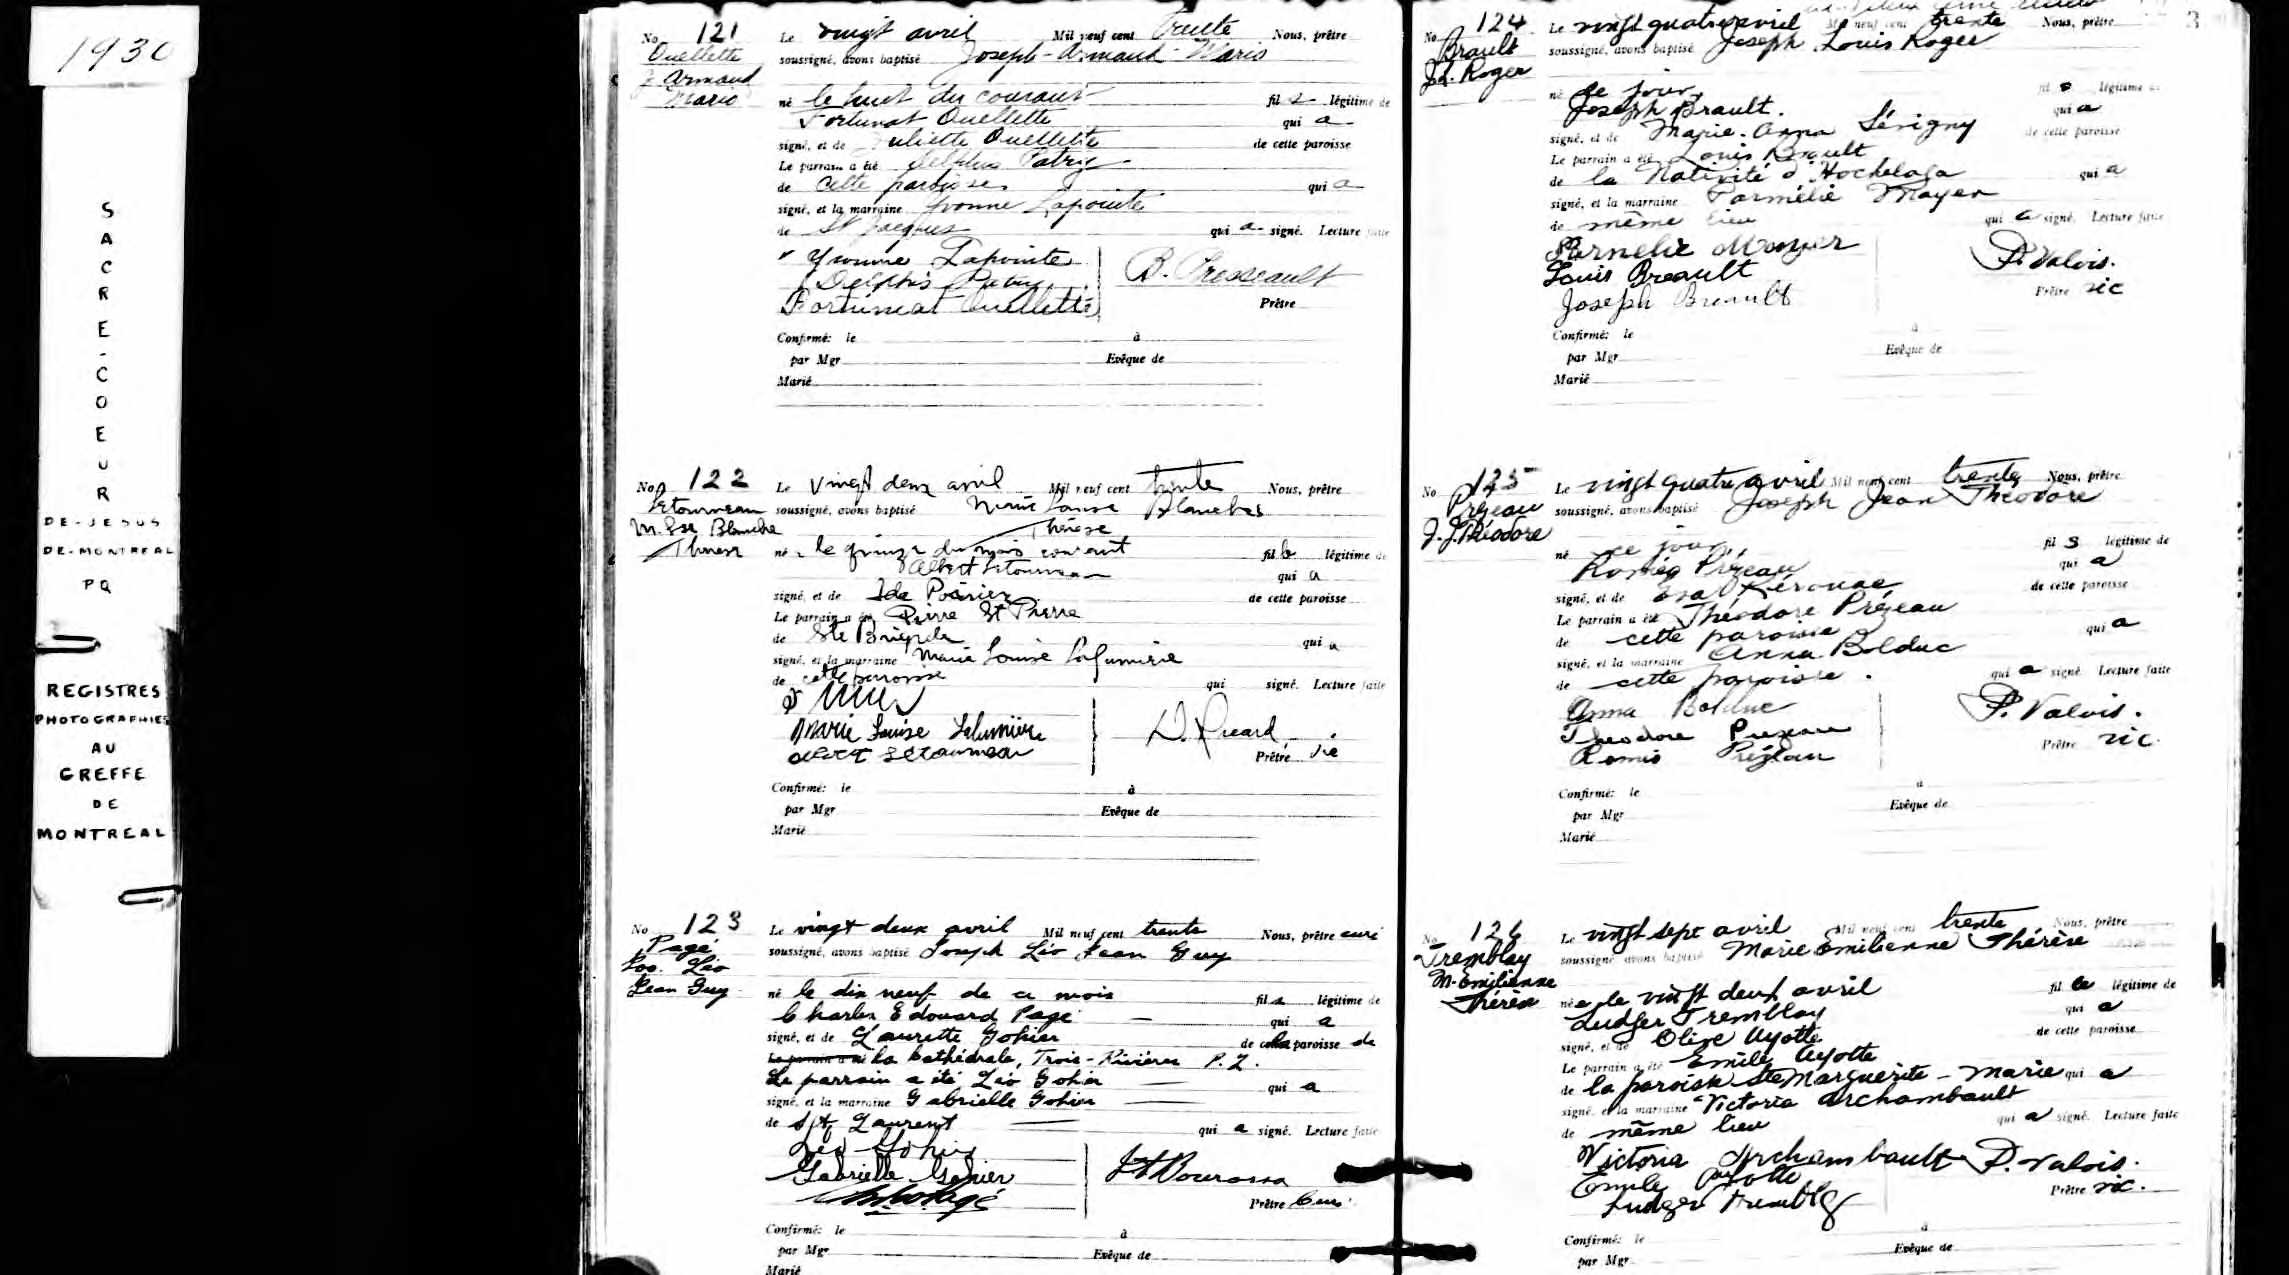 1930
SACRE-COEUR
DE-JESUS
DE-MONTREAL
PQ
REGISTRES
PHOTOGRAPHIES
AU
GREFFE
DE
MONTREAL
No 121
Ouellette
J. Armand
Mario
Le vingt avril Mil neuf cent trente Nous, prêtre
soussigné, avons baptisé Joseph-Armand-Mario
né le huit du courant fils légitime de
Fortunat Ouellette qui a
signé, et de Juliette Ouellette de cette paroisse
Le parrain a été Delphis Patry
de cette paroisse qui a
signé, et la marraine Yvonne Lapointe
de St Jacques qui a signé. Lecture faite
Yvonne Lapointe
Delphis Patry
Fortunat Ouellette
B. Presseault
Prêtre
Confirmé: le à
par Mgr Evêque de
Marié
No 122
Letourneau
M. Lse Blanche
Thérèse
Le vingt deux avril Mil neuf cent trente Nous, prêtre
soussigné, avons baptisé Marie Louise Blanche
Thérèse
née le quinze du mois courant fille légitime de
Albert Letourneau qui a
signé, et de Ida Poirier de cette paroisse
Le parrain a été Pierre St Pierre
de Ste Brigide qui a
signé, et la marraine Marie Louise Lafumière
de cette paroisse qui signé. Lecture faite
Marie Louise
Albert Letourneau
Picard
Prêtre vic
Confirmé: le à
par Mgr Evêque de
Marié
No 123
Pagé
Jos. Léo
Jean Guy
Le vingt deux avril Mil neuf cent trente Nous, prêtre curé
soussigné, avons baptisé Joseph Léo Jean Guy
né le dix neuf de ce mois fils légitime de
Charles Edouard Pagé qui a
signé, et de Laurette Gohier de la paroisse de
la Cathédrale, Trois-Rivières P. Q.
Le parrain a été Léo Gohier qui a
signé, et la marraine Gabrielle Gohier
de St Laurent qui a signé. Lecture faite
Léo Gohier
Gabrielle Gohier
Pagé
Bourassa
Prêtre Curé
Confirmé: le à
par Mgr Evêque de
Marié
3
No 124
Brault
J.L. Roger
Le vingt quatre avril Mil neuf cent trente Nous, prêtre
soussigné, avons baptisé Joseph Louis Roger
né ce jour, fils légitime de
Joseph Brault. qui a
signé, et de Marie-Anna Sévigny de cette paroisse
Le parrain a été Louis Brault
de la Nativité d'Hochelaga qui a
signé, et la marraine Parmélie Mayer
de même lieu qui a signé. Lecture faite
Parmelie Mayer
Louis Breault
Joseph Breault
P. Valois.
Prêtre vic
Confirmé: le à
par Mgr Evêque de
Marié
No 125
Prézeau
J. J. Théodore
Le vingt quatre avril Mil neuf cent trente Nous, prêtre
soussigné, avons baptisé Joseph Jean Théodore
né ce jour, fils légitime de
Roméo Prézeau qui a
signé, et de Kérouac de cette paroisse
Le parrain a été Théodore Prézeau
de cette paroisse qui a
signé, et la marraine Anna Bolduc
de cette paroisse. qui a signé. Lecture faite
Anna Bolduc
Theodore Prezeau
Romeo Prézeau
P. Valois.
Prêtre vic.
Confirmé: le à
par Mgr Evêque de
Marié
No 126
Tremblay
M-Emilienne
Thérèse
Le vingt sept avril Mil neuf cent trente Nous, prêtre
soussigné avons baptisé Marie Emilienne Thérèse
née le vingt deux avril fille légitime de
Ludger Tremblay qui a
signé, et de Olive Ayotte de cette paroisse
Le parrain a été Emile Ayotte
de la paroisse Ste Marguerite-Marie qui a
signé, et la marraine Victoria Archambault
de même lieu qui a signé. Lecture faite
Victoria Archambault
Emile Ayotte
Ludger Tremblay
P. Valois.
Prêtre vic.
Confirmé: le à
par Mgr Evêque de